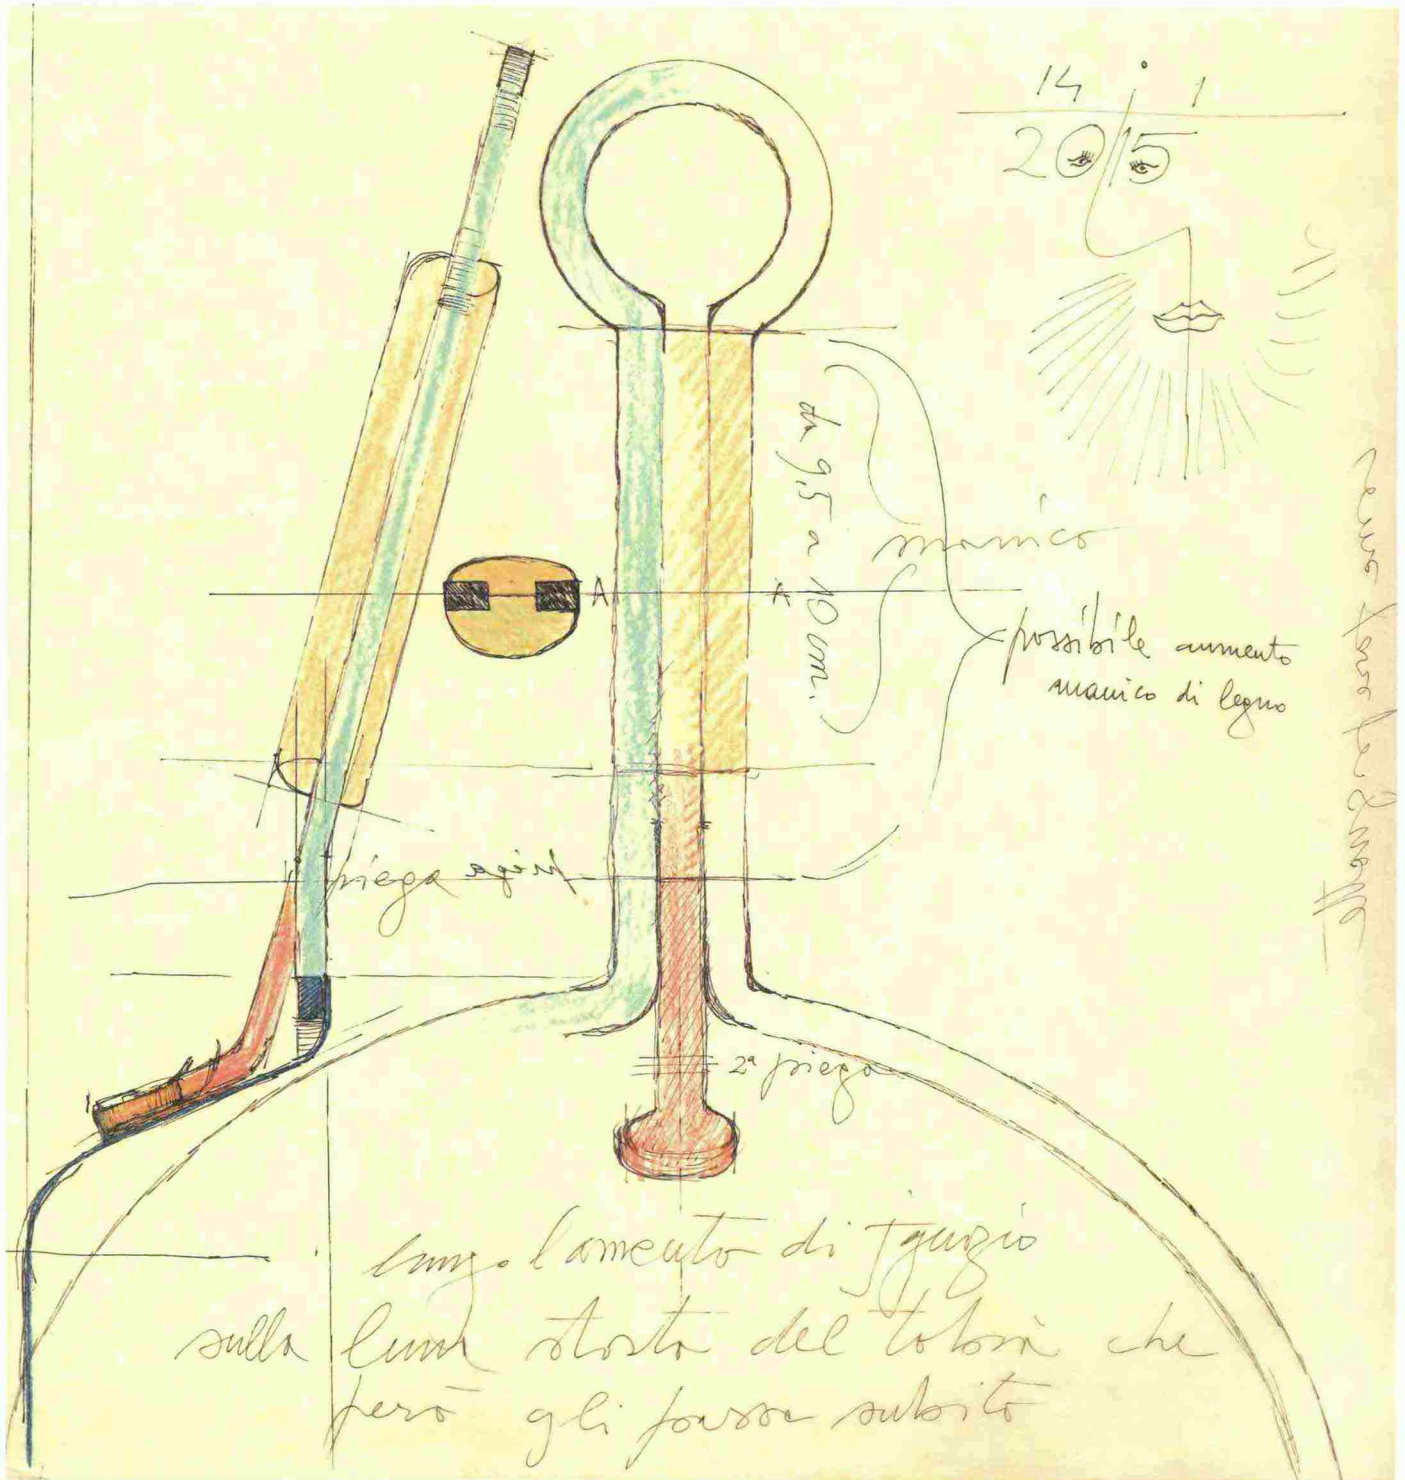 14 1
2015
da 9,5 a 10 cm.
manico
possibile aumento
manico di legno
A
piega
2ª piega
lungo lamento di Ignazio
sulla luna storta del tobià che
però gli passa subito